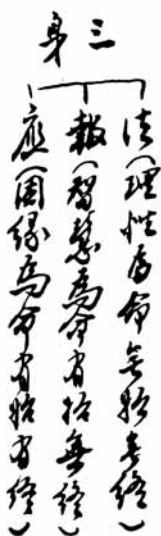 三身
法（理性為命無始無終）
報（智慧為命有始無終）
應（因緣為命有始有終）